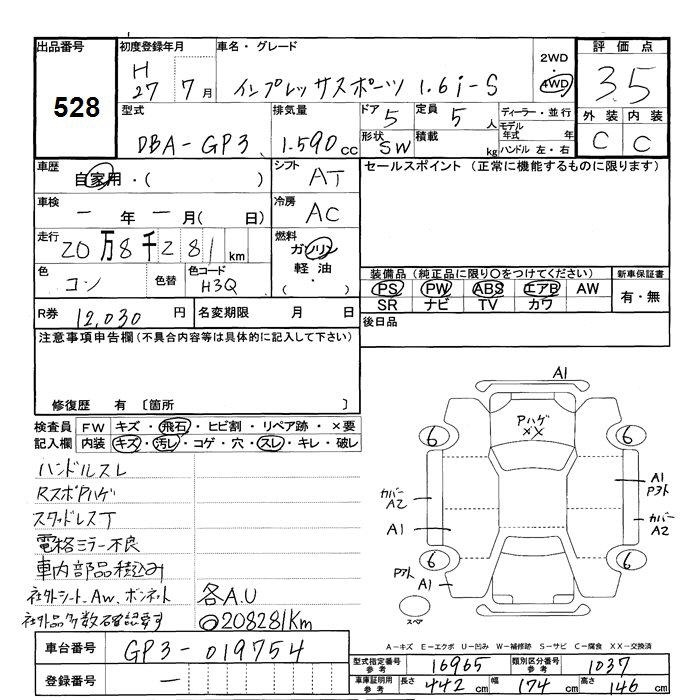 出品番号 初度登録年月 車名・グレード 評価点
528
H 27年 7月 インプレッサスポーツ 1.6i-S 2WD・4WD 3.5
型式 排気量 ドア 定員 ディーラー・並行 外装 内装
DBA-GP3 1.590cc 5 5人 モデル年式 年 C C
形状 SW 積載 kg ハンドル 左・右
車歴 自家用・( ) シフト AT セールスポイント(正常に機能するものに限ります)
車検 一年一月( 日) 冷房 AC
走行 20万8千281km 燃料 ガソリン
色 コン 色替 色コード H3Q 軽油・( )
装備品(純正品に限り○をつけてください) 新車保証書
PS PW ABS エアB AW 有・無
SR ナビ TV カワ
R券 12,030円 名変期限 月 日 後日品
注意事項申告欄(不具合内容等は具体的に記入して下さい)
修復歴 有〔箇所 〕
検査員 FW キズ・飛石・ヒビ割・リペア跡・×要
記入欄 内装 キズ・汚レ・コゲ・穴・スレ・キレ・破レ
ハンドルスレ
RスポPハゲ
スタッドレスT
電格ミラー不良
車内部品積込み
社外シート、Aw、ボンネット 各A.U
社外品多数 ◎208281Km
A1
Pハゲ
XX
6 6
カバー
A2
A1
Pアト
A1
カバー
A2
6 6
Pアト
A1
スペア
A-キズ E-エクボ U-凹み W-補修跡 S-サビ C-腐食 XX-交換済
車台番号 GP3-019754
型式指定番号 参考 16965 類別区分番号 参考 1037
登録番号 一
車庫証明用 参考 長さ 442cm 幅 174cm 高さ 146cm